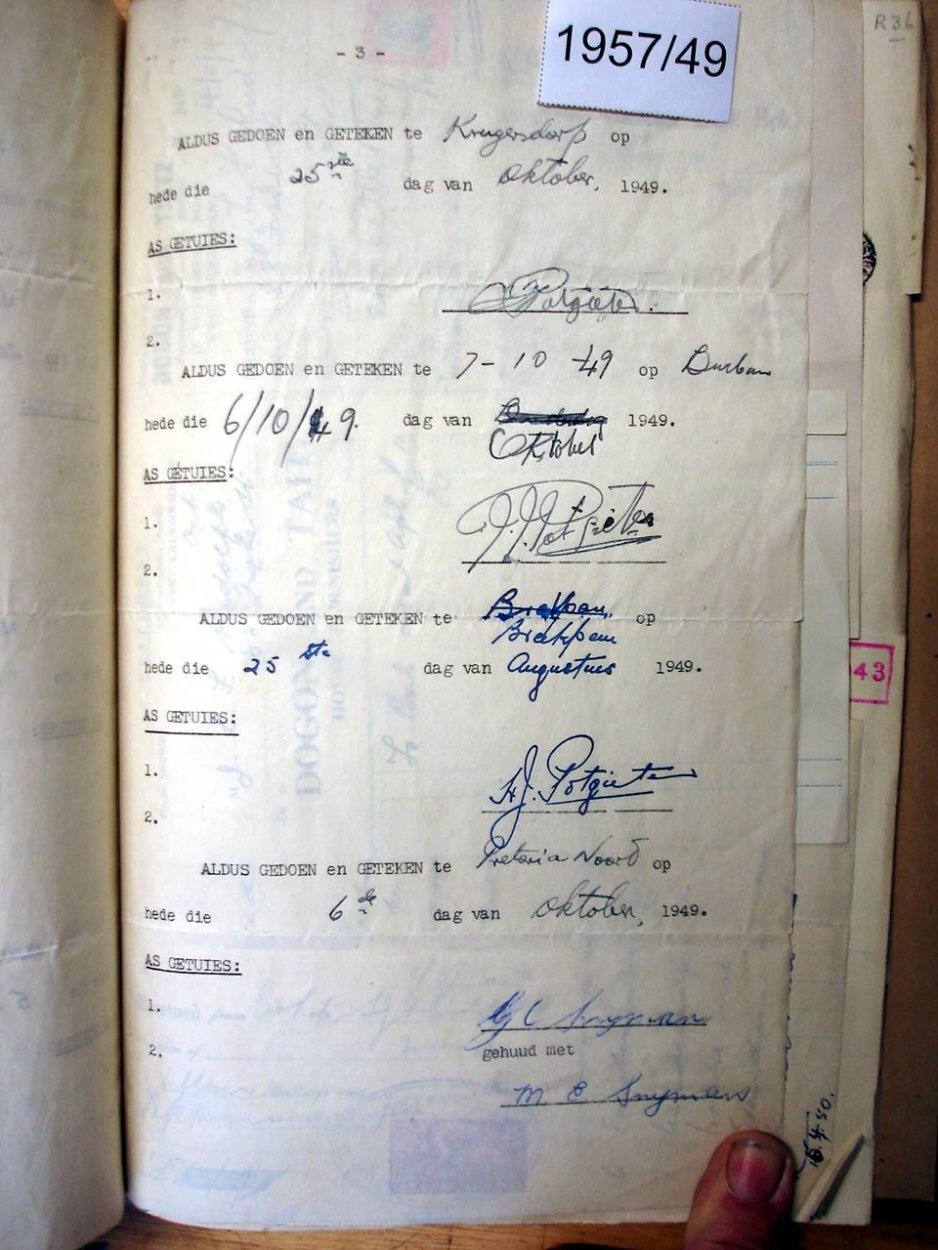 1957/49
R36
- 3 -
ALDUS GEDOEN en GETEKEN te Krugersdorp op
hede die 25ste dag van Oktober, 1949.
AS GETUIES:
1.
Potgieter.
2.
ALDUS GEDOEN en GETEKEN te 7-10-49 op Durban
hede die 6/10/49. dag van Oktober 1949.
AS GETUIES:
1.
J.J. Potgieter
2.
ALDUS GEDOEN en GETEKEN te Brakpan op
Brakpan
hede die 25ste dag van Augustus 1949.
AS GETUIES:
1.
H.J. Potgieter
2.
ALDUS GEDOEN en GETEKEN te Pretoria Noord op
hede die 6de dag van Oktober, 1949.
AS GETUIES:
1.
Snyman
2.
gehuud met
M E Snyman
43